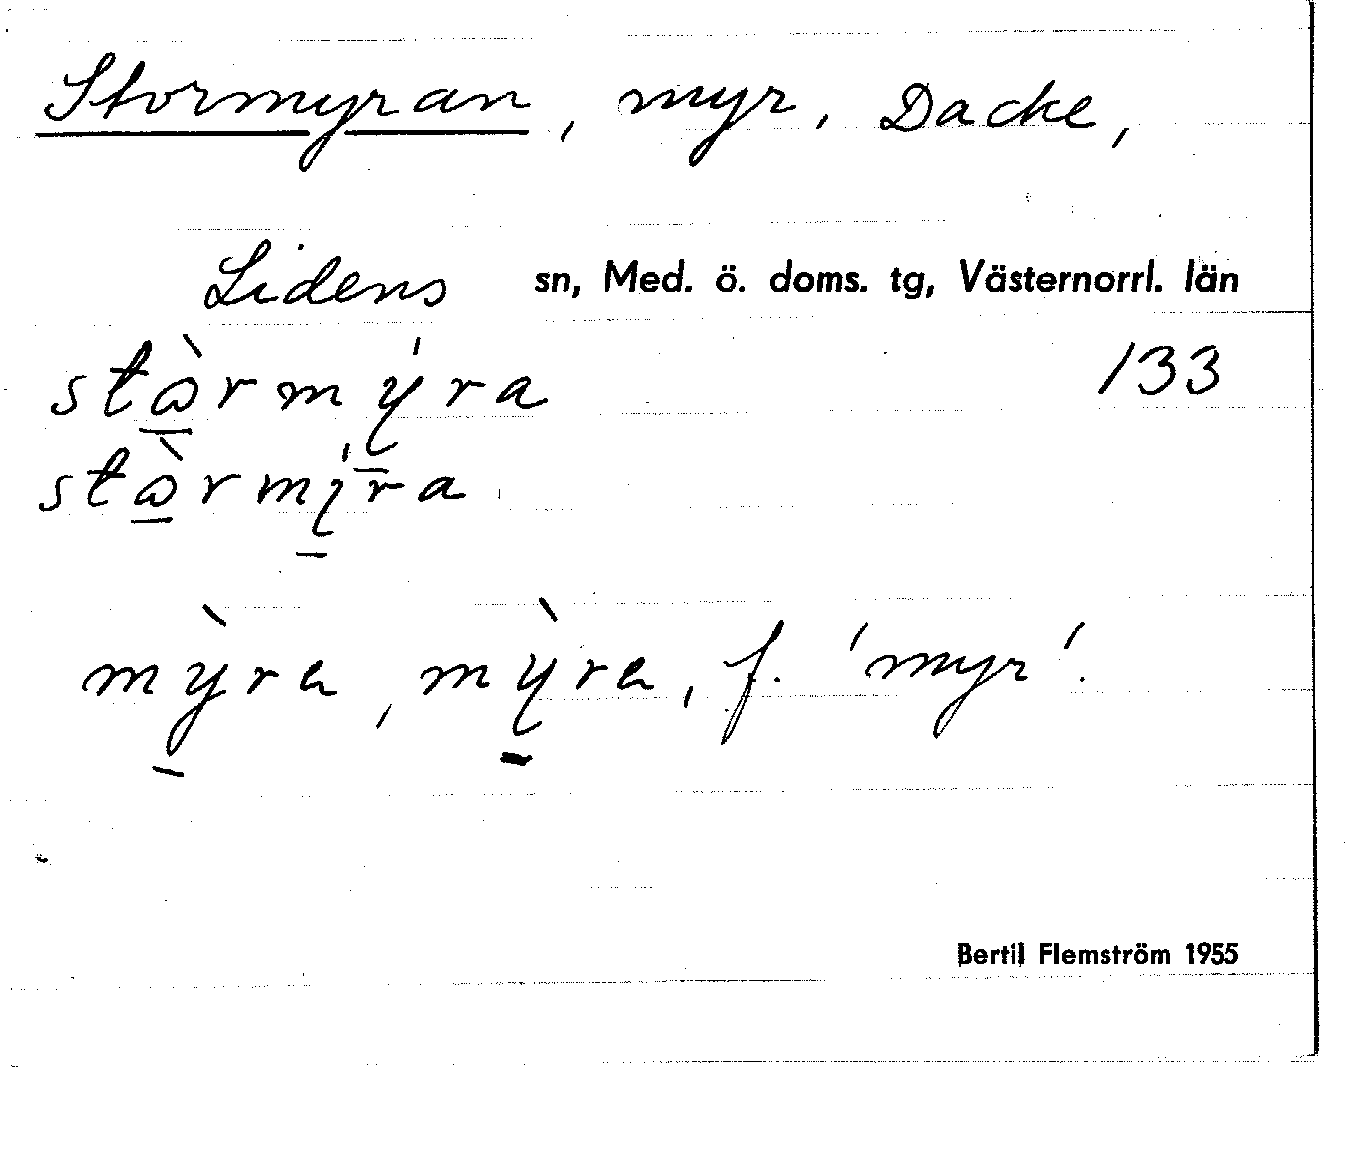 Stormyran, myr, Dacke,
Lidens sn, Med. ö. doms. tg, Västernorrl. län
133
stɷ̠̀rmýra
stɷ̠̀rmí̠r̄a
mỳ̠ra, mỳ̠ra, f. 'myr'.
Bertil Flemström 1955